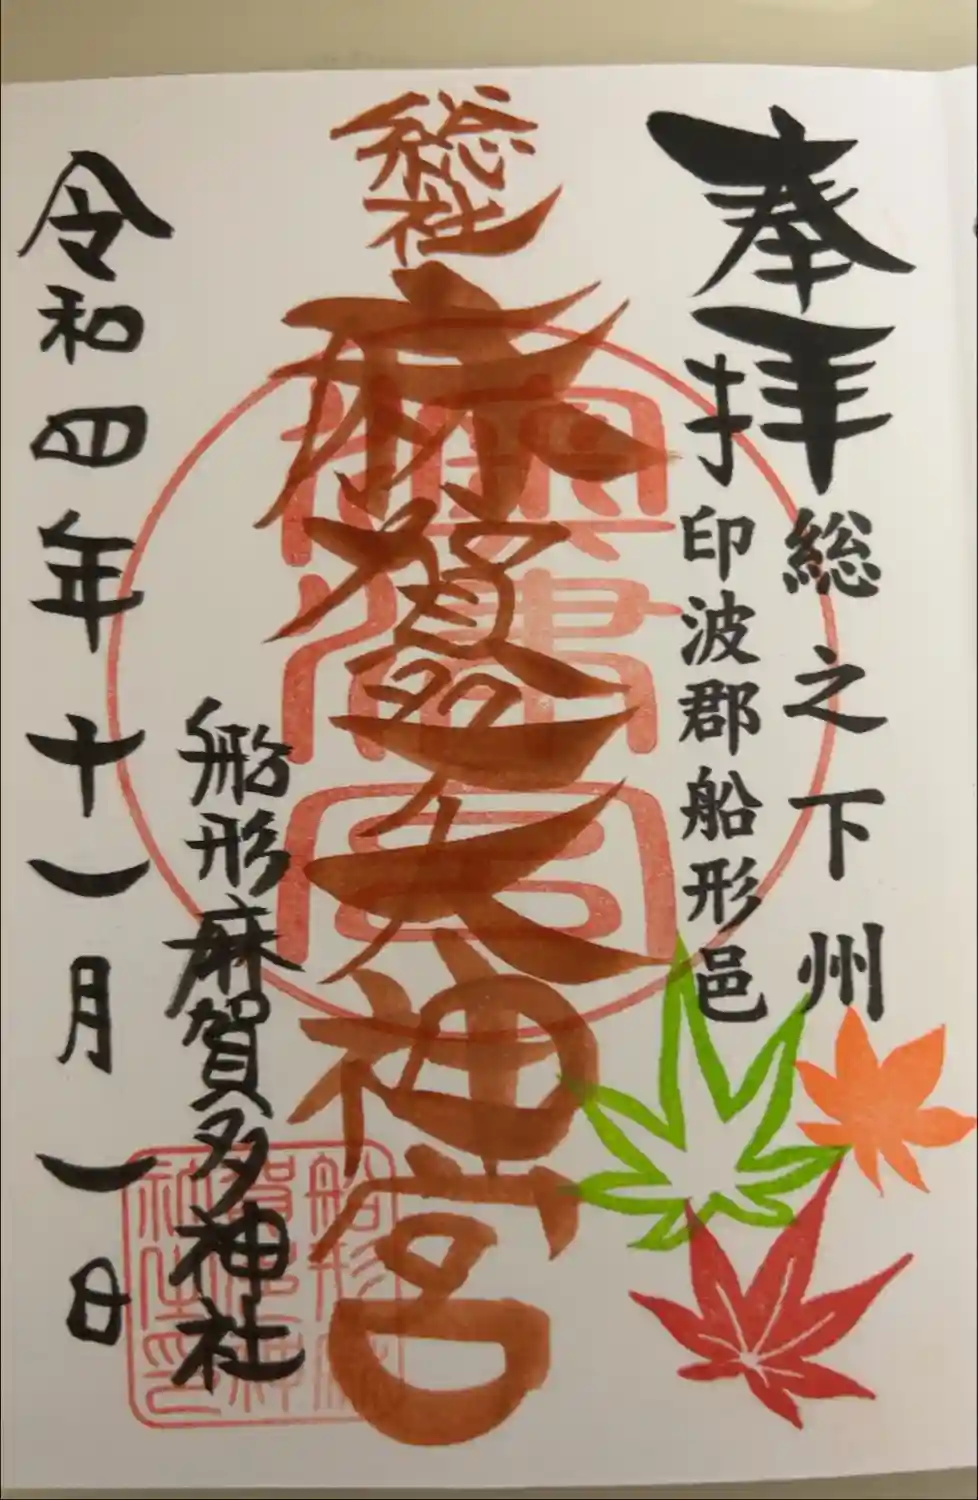 奉拝
総之下州
印波郡船形邑
総社
麻賀多大神宮
船形麻賀多神社
船形麻
賀多神
社之印
令和四年十一月一日